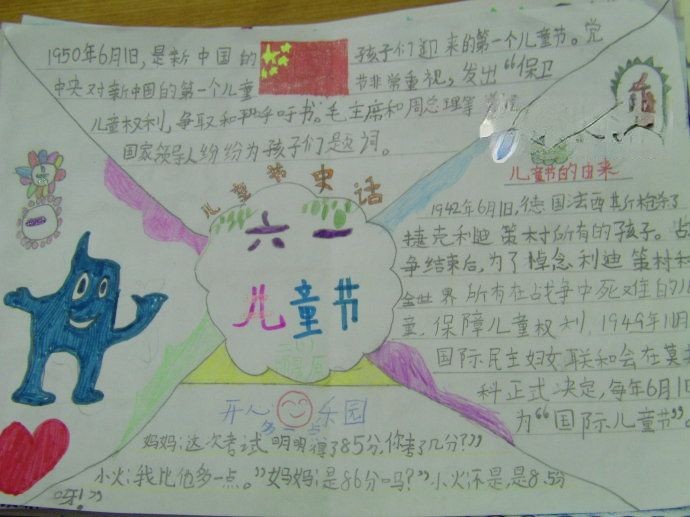 1950年6月1日,是新中国的孩子们迎来的第一个儿童节。党
中央对新中国的第一个儿童节非常重视,发出“保卫
儿童权利,争取和平呼吁书。毛主席和周总理等
国家领导人纷纷为孩子们题词。
儿童节史话
六一
儿童节
儿童节的由来
1942年6月1日,德国法西斯枪杀了
捷克利迪策村所有的孩子。占
争结束后,为了悼念利迪策村和
全世界所有在战争中死难的儿
童,保障儿童权利,1949年11月
国际民主妇女联和会在莫
科正式决定,每年6月1日
为“国际儿童节”。
开心乐园
多一点
妈妈:这次考试明明得了85分,你考了几分?”
小火:我比他多一点。”妈妈:是86分吗?”小火:不是,是8.5分
呀!”